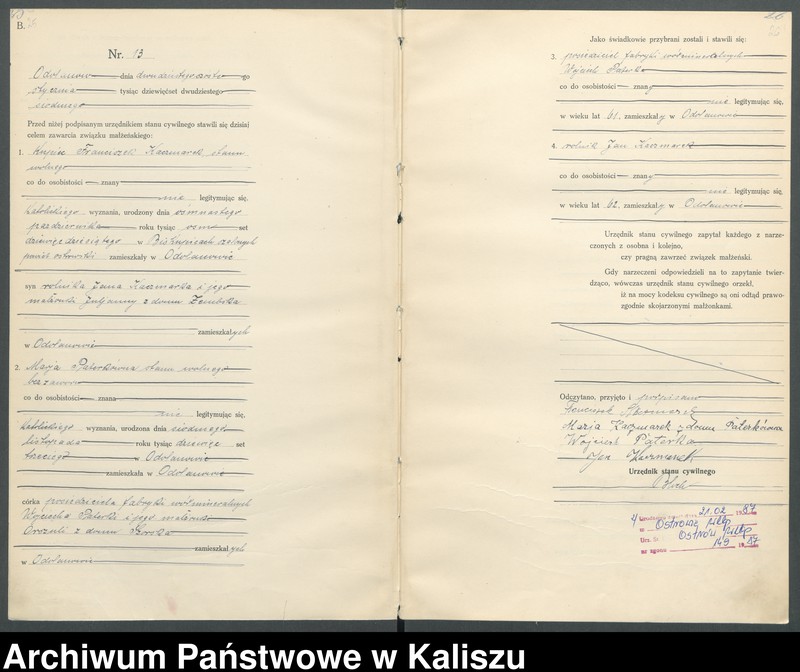 B.
Nr. 13
Odolanów dnia dwudziestego czwartego
stycznia tysiąc dziewięćset dwudziestego
siódmego
Przed niżej podpisanym urzędnikiem stanu cywilnego stawili się dzisiaj
celem zawarcia związku małżeńskiego:
1. Franciszek Kaczmarek stanu
wolnego
co do osobistości znany
nie legitymując się,
katolickiego wyznania, urodzony dnia ósmnastego
października roku tysiąc osm set
dziewięćdziesiątego w
powiat ostrowski zamieszkały w Odolanowie
syn rolnika Jana Kaczmarka i jego
małżonki Juljanny z domu
zamieszkałych
w Odolanowie
2. Marja Paterkówna stanu wolnego
bez zawodu
co do osobistości znana
nie legitymując się,
katolickiego wyznania, urodzona dnia siódmego
listopada roku tysiąc dziewięć set
trzeciego w Odolanowie
zamieszkała w Odolanowie
córka posiedziciela fabryki wód mineralnych
Wojciecha Paterki i jego małżonki
z domu
zamieszkałych
w Odolanowie
Jako świadkowie przybrani zostali i stawili się:
3. posiedziciel fabryki wód mineralnych
Wojciech Paterka
co do osobistości znany
nie legitymując się,
w wieku lat 61, zamieszkały w Odolanowie
4. rolnik Jan Kaczmarek
co do osobistości znany
nie legitymując się,
w wieku lat 62, zamieszkały w Odolanowie
Urzędnik stanu cywilnego zapytał każdego z narze-
czonych z osobna i kolejno,
czy pragną zawrzeć związek małżeński.
Gdy narzeczeni odpowiedzieli na to zapytanie twier-
dząco, wówczas urzędnik stanu cywilnego orzekł,
iż na mocy kodeksu cywilnego są oni odtąd prawo-
zgodnie skojarzonymi małżonkami.
Odczytano, przyjęto i podpisano
Franciszek Kaczmarek
Marja Kaczmarek z domu Paterkówna
Wojciech Paterka
Jan Kaczmarek
Urzędnik stanu cywilnego
21.02 1987
w Ostrowie Wlkp
Ostrów Wlkp
149 87
Archiwum Państwowe w Kaliszu